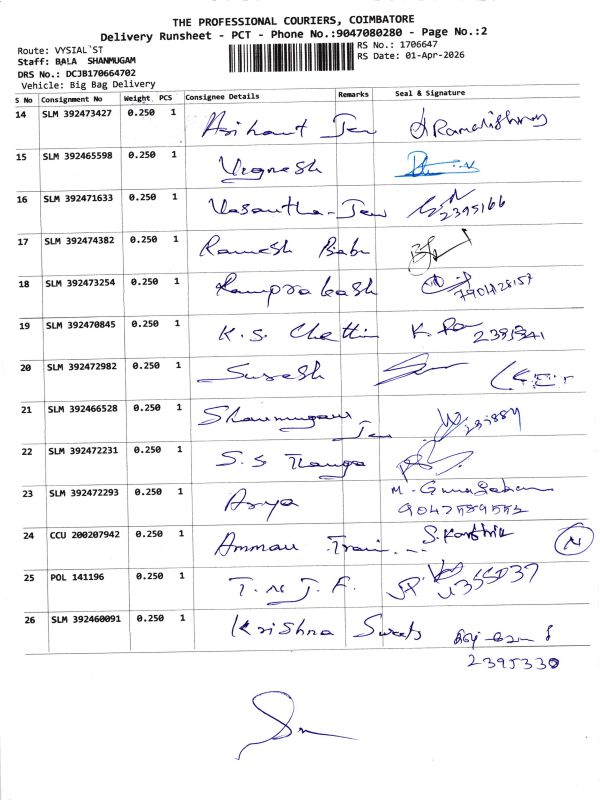 THE PROFESSIONAL COURIERS, COIMBATORE
Delivery Runsheet - PCT - Phone No.:9047080280 - Page No.:2
Route: VYSIAL`ST
RS No.: 1706647
Staff: BALA SHANMUGAM
RS Date: 01-Apr-2026
DRS No.: DCJB170664702
Vehicle: Big Bag Delivery
S No Consignment No Weight PCS Consignee Details Remarks Seal & Signature
14 SLM 392473427 0.250 1 Arihant
15 SLM 392465598 0.250 1 Vignesh
16 SLM 392471633 0.250 1 Vasantha 2395166
17 SLM 392474382 0.250 1 Ramesh Babu
18 SLM 392473254 0.250 1 Ramprakash 7904128157
19 SLM 392470845 0.250 1 K.S. Chettin
20 SLM 392472982 0.250 1 Suresh
21 SLM 392466528 0.250 1 Shanmugam
22 SLM 392472231 0.250 1 S.S Thanga
23 SLM 392472293 0.250 1 Arya
24 CCU 200207942 0.250 1 Amman S. Karthik N
25 POL 141196 0.250 1 T.N.J.F.
26 SLM 392460091 0.250 1 Krishna Sweets
2395330